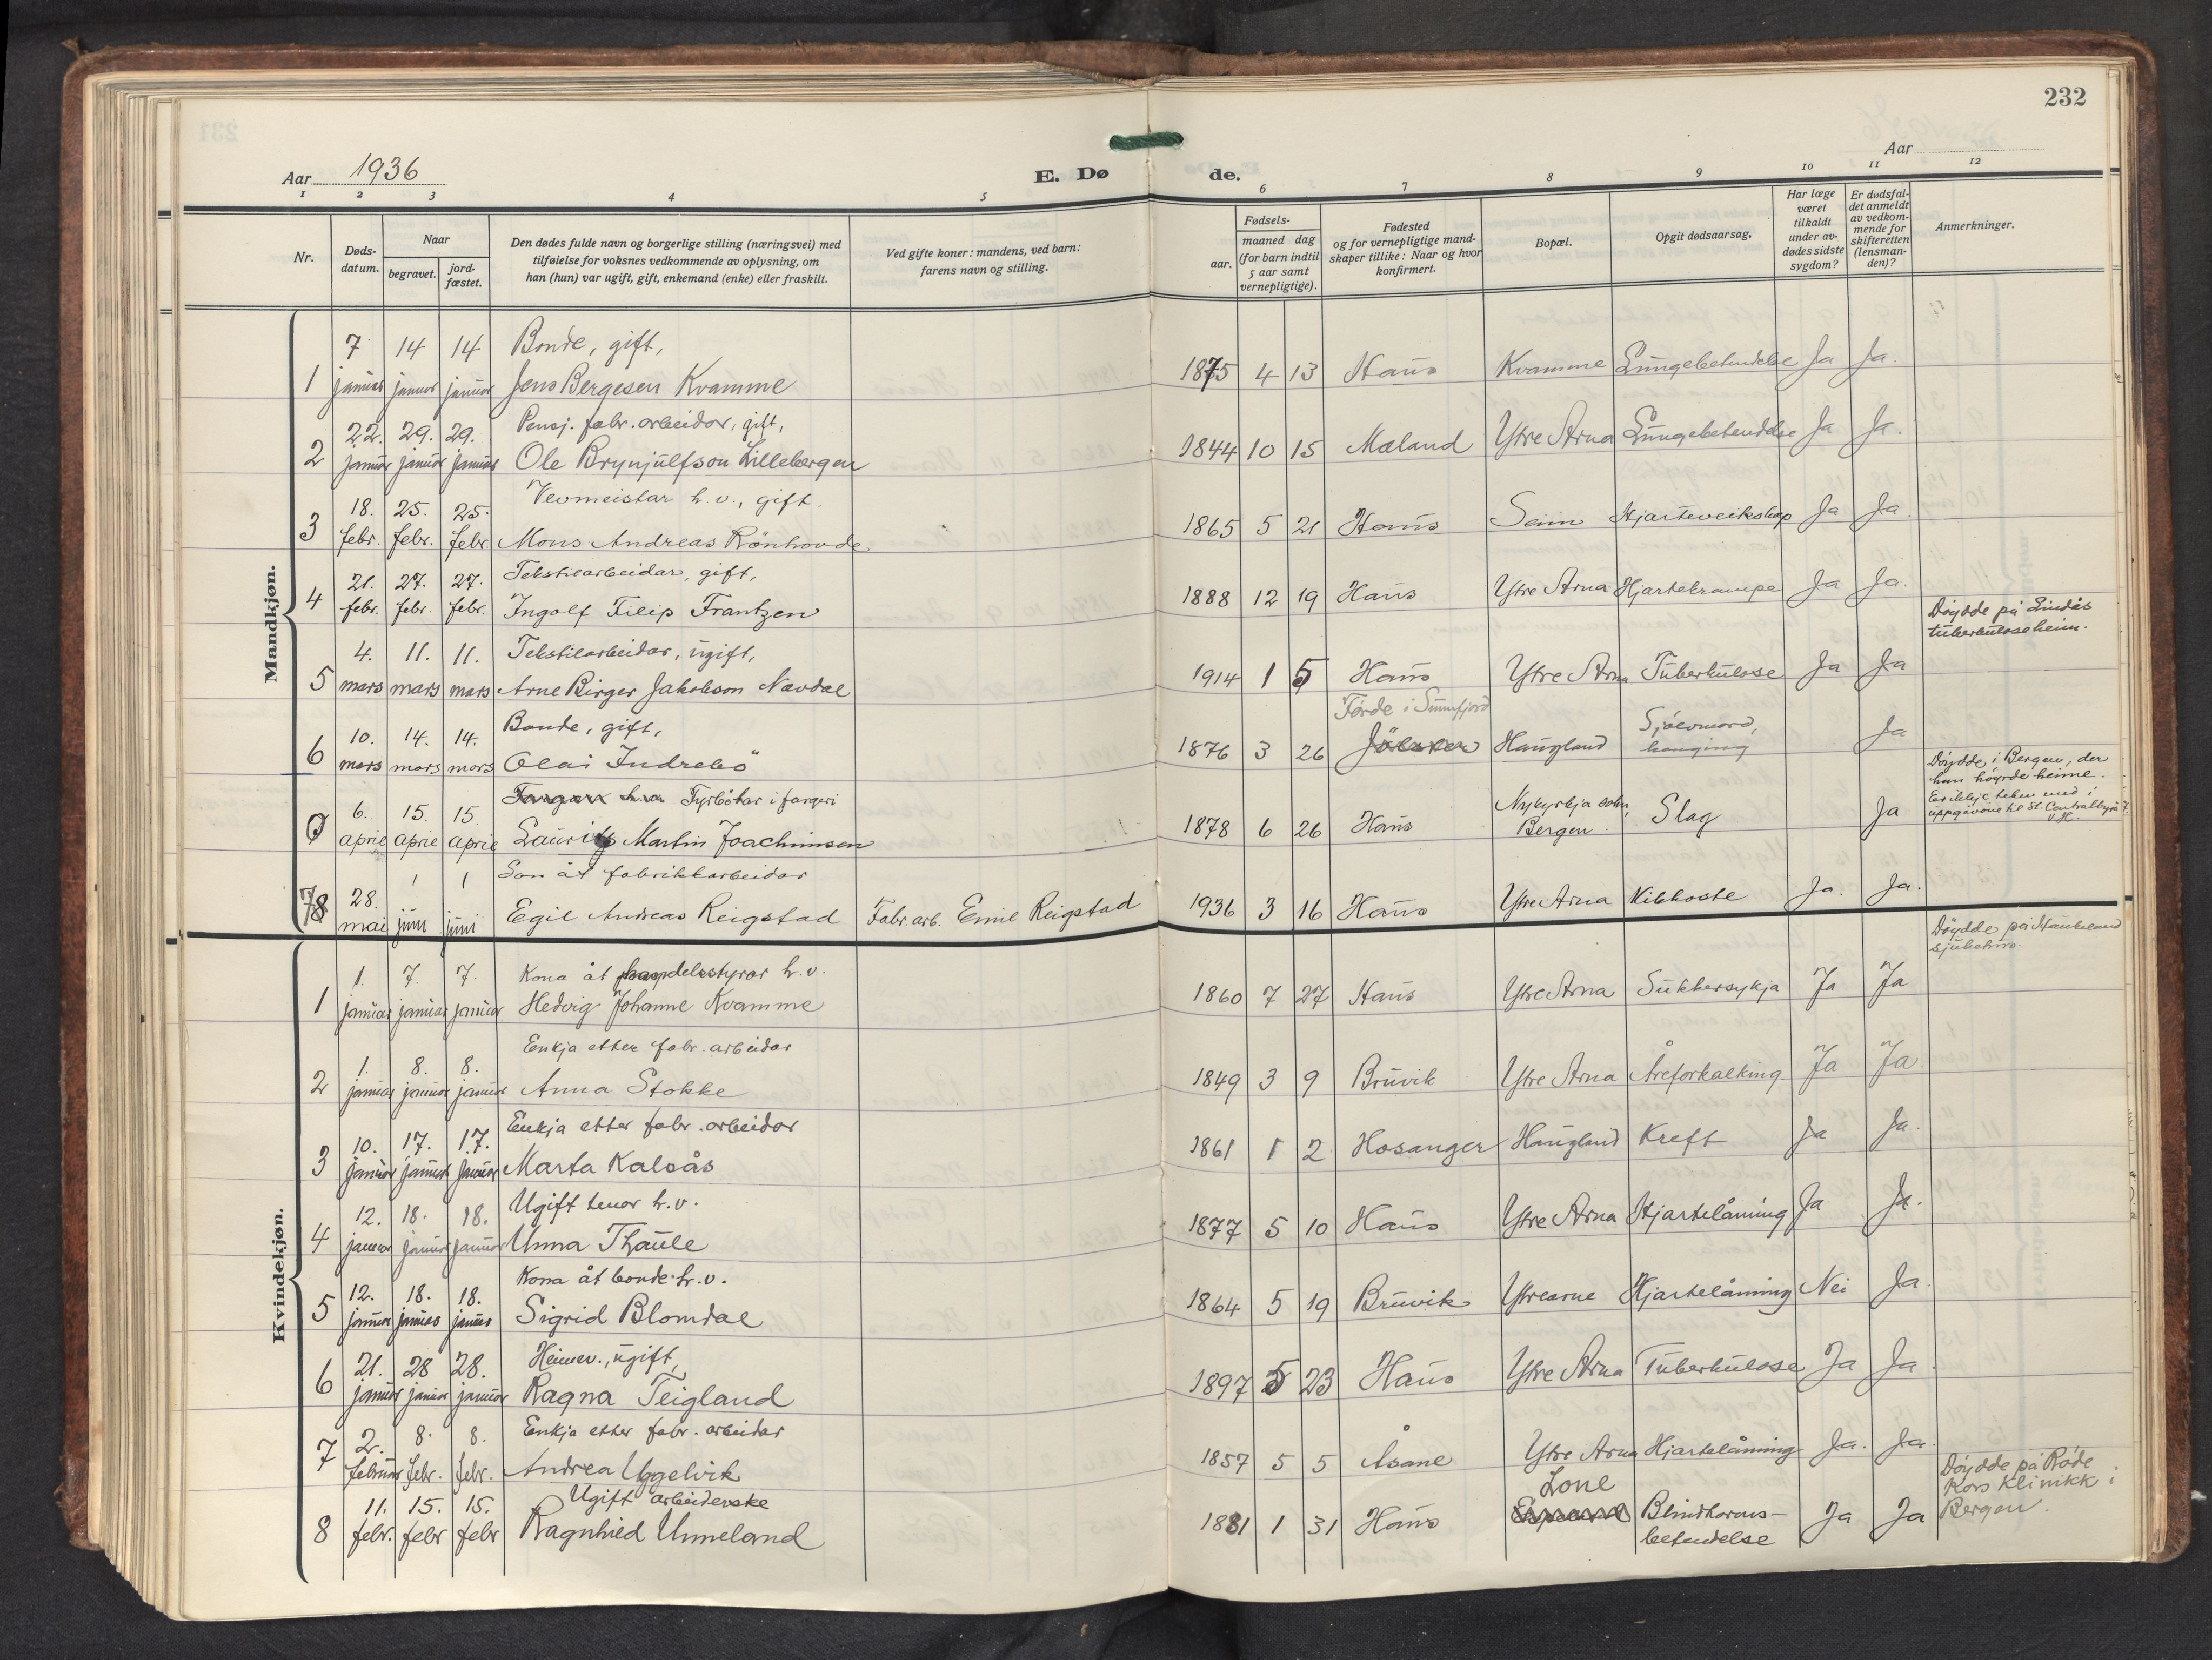 232
Aar 1936
E. Dø de.
Aar
1 2 3 4 5 6 7 8 9 10 11 12
Nr.
Døds-datum.
Naar
begravet.
jord-fæstet.
Den dødes fulde navn og borgerlige stilling (næringsvei) med
tilføielse for voksnes vedkommende av oplysning, om
han (hun) var ugift, gift, enkemand (enke) eller fraskilt.
Ved gifte koner: mandens, ved barn:
farens navn og stilling.
Fødsels-
aar.
maaned dag
(for barn indtil
5 aar samt
vernepligtige).
Fødested
og for vernepligtige mand-
skaper tillike: Naar og hvor
konfirmert.
Bopæl.
Opgit dødsaarsag.
Har læge
været
tilkaldt
under av-
dødes sidste
sygdom?
Er dødsfal-
det anmeldt
av vedkom-
mende for
skifteretten
(lensman-
den)?
Anmerkninger.
Mandkjøn.
7 14 14 Bonde, gift,
1 januar januar januar Jens Bergesen Kvamme 1875 4 13 Haus Kvamme Lungebetendelse Ja Ja.
22. 29. 29. Pensj. fabr. arbeidar, gift,
2 januar januar januar Ole Brynjulfson Lillebergen 1844 10 15 Mæland Ytre Arna Lungebetendelse Ja Ja.
18. 25. 25. Vevmeistar h.v., gift.
3 febr. febr. febr. Mons Andreas Rönhovde 1865 5 21 Haus Seim Hjarteveikskap Ja Ja.
21. 27. 27. Tekstilarbeidar, gift,
4 febr. febr. febr. Ingolf Filip Frantzen 1888 12 19 Haus Ytre Arna Hjartekrampe Ja Ja.
Döydde på Lindås
tuberkuloseheim.
4. 11. 11. Tekstilarbeidar, ugift,
5 mars mars mars Arne Birger Jakobson Navdal 1914 1 5 Haus Ytre Arna Tuberkulose Ja Ja
Förde i Sunnfjord
10. 14. 14. Bonde, gift,
6 mars mars mars Olai Indrebö 1876 3 26 Jölster Haugland Sjölvmord, henging Ja
Döydde i Bergen, der
han höyrde heime.
Er ikkje teken med i
uppgåvone til St. Centralbyrå
V.H.
6. 15. 15. Fargar h.v. Fyrbötar i fargeri
0 april april april Lauritz Martin Joachimsen 1878 6 26 Haus Nykyrkja sokn, Bergen Slag Ja
28. 1 1 Son åt fabrikkarbeidar
78 mai juni juni Egil Andreas Reigstad Fabr. arb. Emil Reigstad 1936 3 16 Haus Ytre Arna Kikhoste Ja. Ja.
Kvindekjøn.
Döydde på Haukeland
sjukehus.
1. 7. 7. Kona åt handelsstyrar h.v.
1 januar januar januar Hedvig Johanne Kvamme 1860 7 27 Haus Ytre Arna Sukkersykja Ja Ja
1. 8. 8. Enkja etter fabr. arbeidar
2 januar januar januar Anna Stokke 1849 3 9 Bruvik Ytre Arna Åreforkalking Ja Ja
10. 17. 17. Enkja etter fabr. arbeidar
3 januar januar januar Marta Kalsås 1861 1 2 Hosanger Haugland Kreft Ja Ja.
12. 18. 18. Ugift tenar h.v.
4 januar januar januar Unna Thaule 1877 5 10 Haus Ytre Arna Hjartelåming Ja Ja.
12. 18. 18. Kona åt bonde h.v.
5 januar januar januar Sigrid Blomdal 1864 5 19 Bruvik Ytrearne Hjartelåming Nei Ja.
21. 28 28. Heimev., ugift,
6 januar januar januar Ragna Teigland 1897 5 23 Haus Ytre Arna Tuberkulose Ja Ja.
2. 8. 8. Enkja etter fabr. arbeidar
7 februar febr. febr. Andrea Uggelvik 1857 5 5 Åsane Ytre Arna Hjartelåming Ja. Ja.
Döydde på Röde
Kors Klinikk i
Bergen.
11. 15. 15. Ugift arbeiderske
8 febr. febr febr Ragnhild Unneland 1881 1 31 Haus Lone Blindtarms-
betendelse Ja Ja